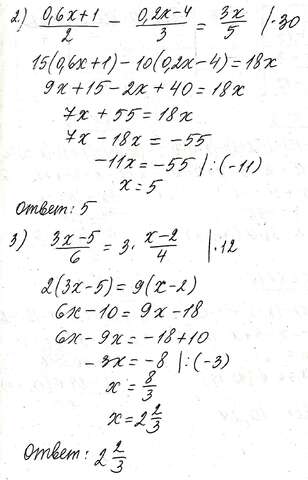 2) (0,6x+1)/2 - (0,2x-4)/3 = 3x/5 |·30
15(0,6x+1)-10(0,2x-4)=18x
9x+15-2x+40=18x
7x+55=18x
7x-18x=-55
-11x=-55 |:(-11)
x=5
Ответ: 5
3) (3x-5)/6 = 3·(x-2)/4 |·12
2(3x-5)=9(x-2)
6x-10=9x-18
6x-9x=-18+10
-3x=-8 |:(-3)
x=8/3
x=2 2/3
Ответ: 2 2/3